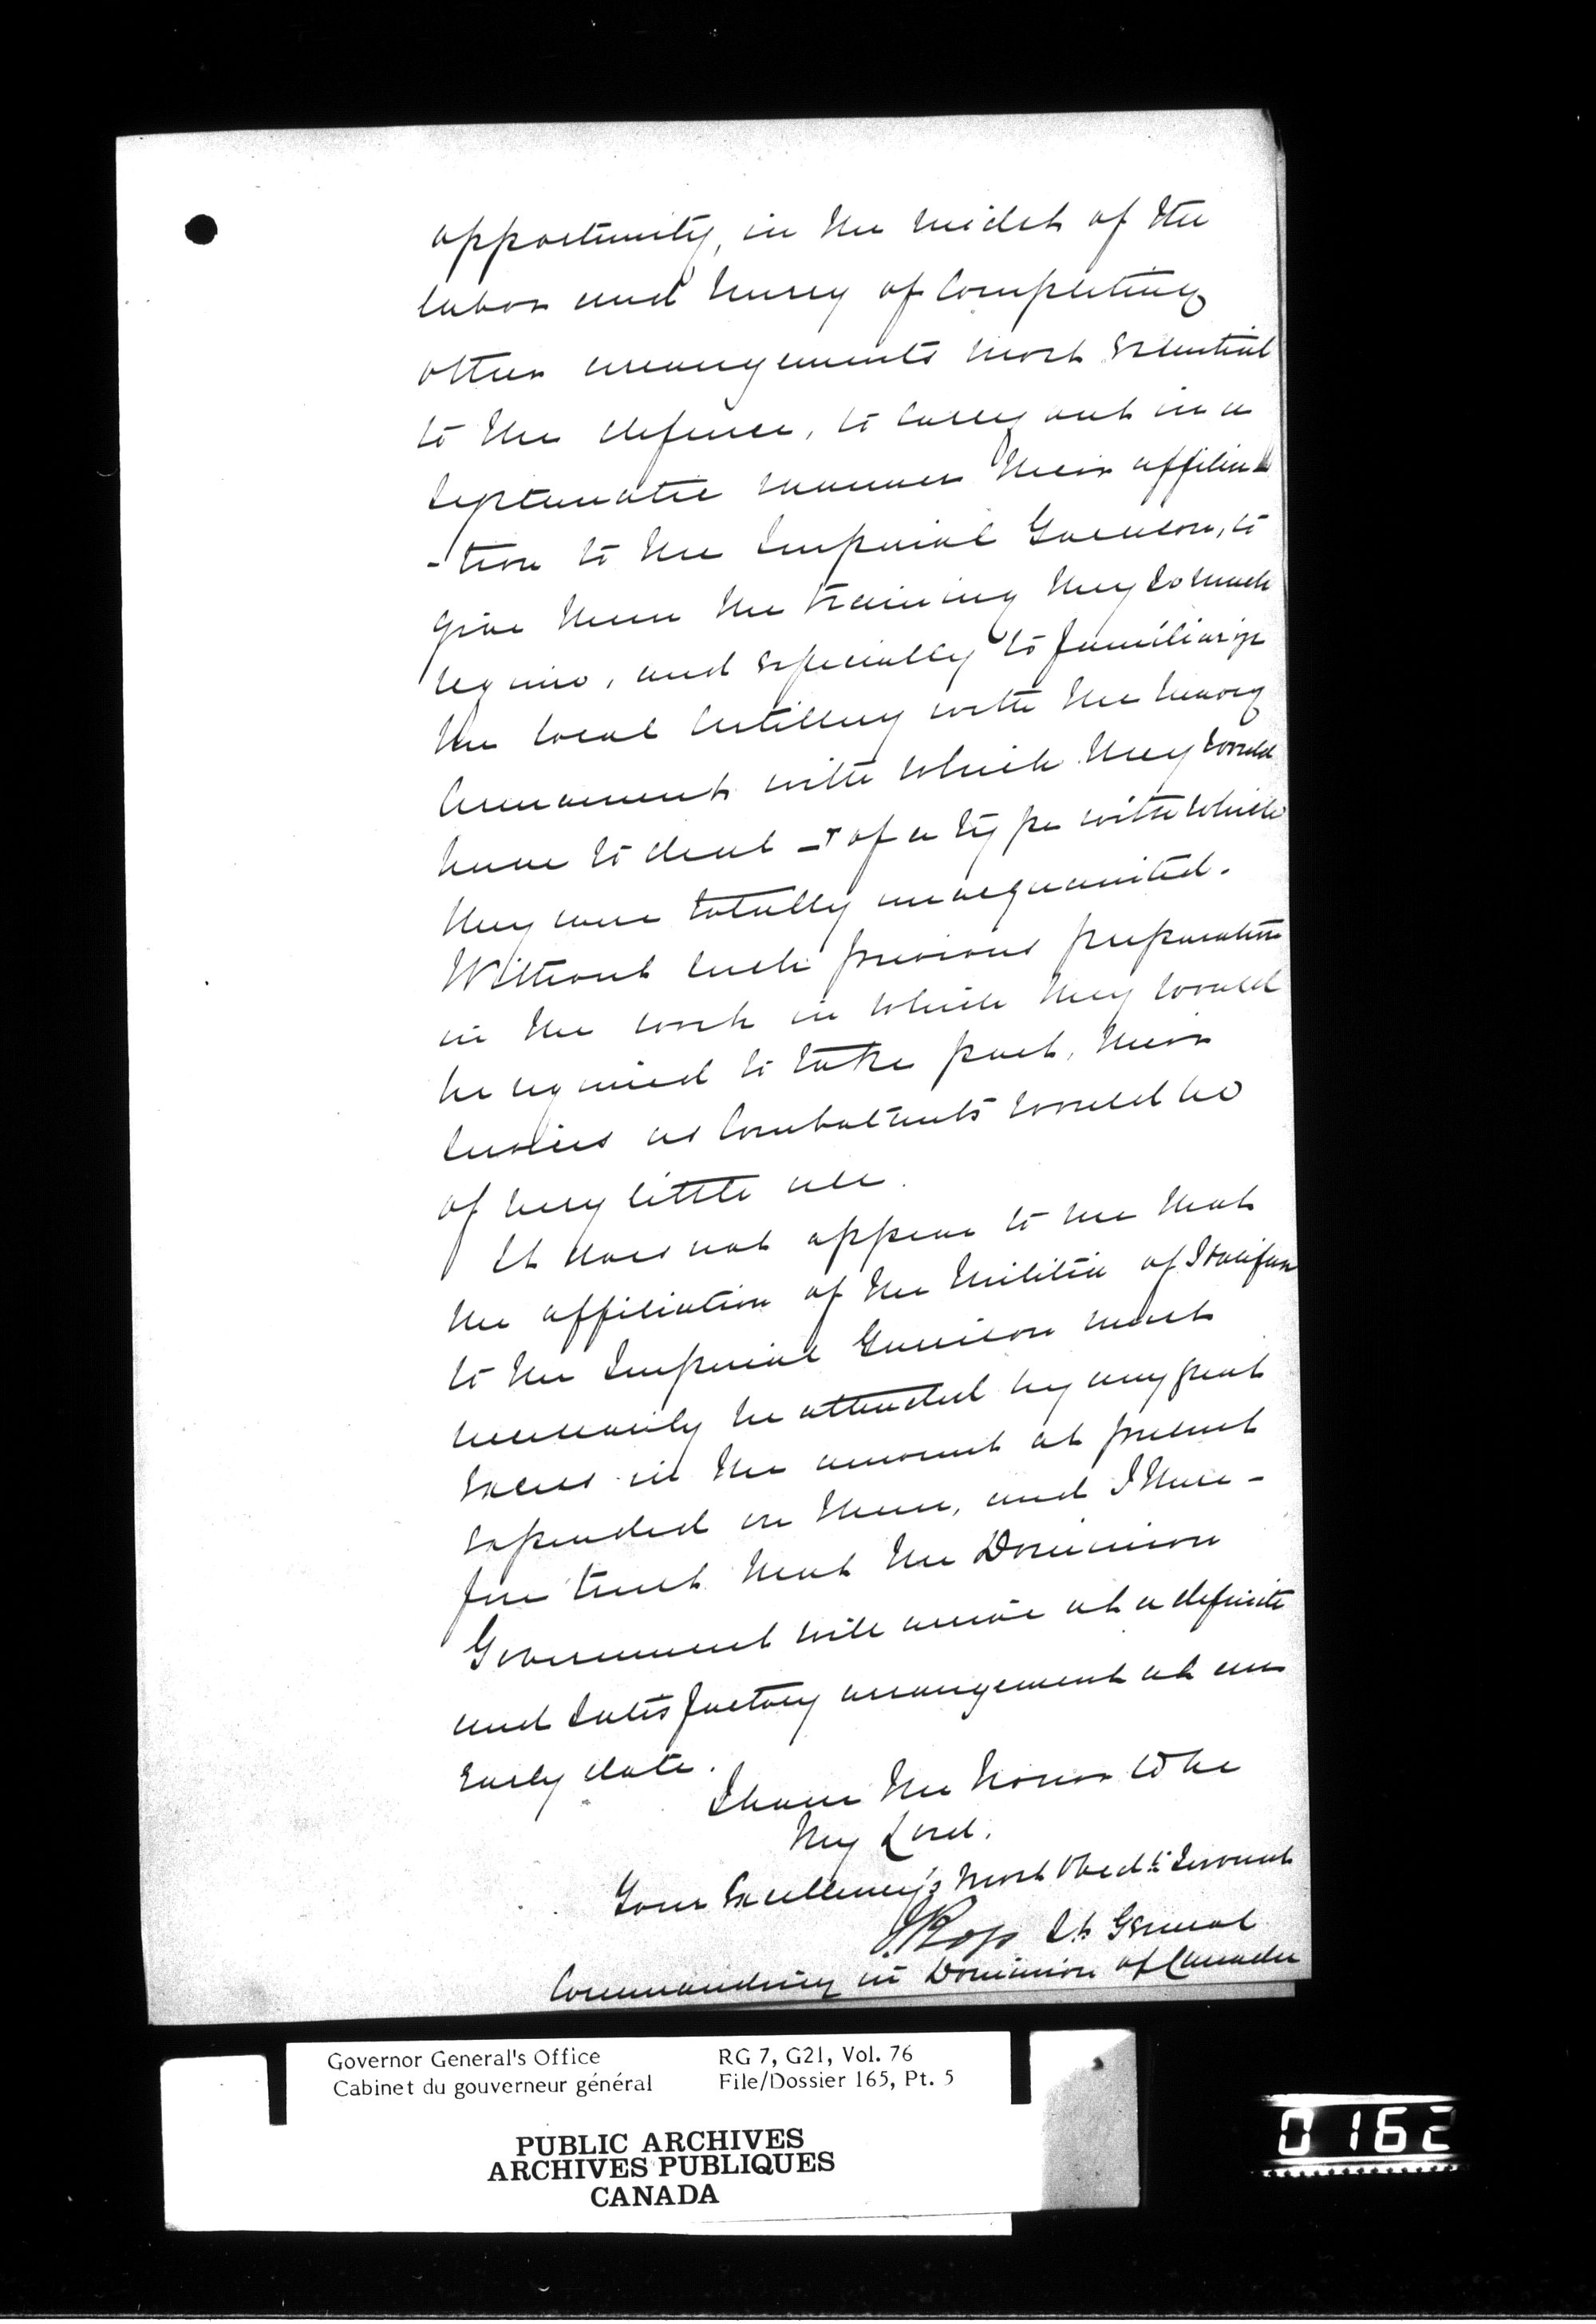 opportunity, in the midst of the
labor and hurry of completing
other arrangements most essential
to the defence, to carry out in a
systematic manner their affilia
-tion to the Imperial Garrison, to
give them the training they so much
require, and especially to familiarize
the local Artillery with the heavy
Armament with which they would
have to deal - & of a type with which
they were totally unacquainted.
Without such previous preparation
in the work in which they would
be required to take part, their
services as Combatants would be
of very little use.
It does not appear to me that
the affiliation of the Militia of Halifax
to the Imperial Garrison must
necessarily be attended by any great
excess in the amount at present
expended on them, and I there-
fore trust that the Dominion
Government will arrive at a definite
and satisfactory arrangement at an
early date.
I have the honor to be
My Lord,
Your Excellency's Most Obedt Servant
J Ross Lt General
Commanding in Dominion of Canada
Governor General's Office
Cabinet du gouverneur général
RG 7, G21, Vol. 76
File/Dossier 165, Pt. 5
PUBLIC ARCHIVES
ARCHIVES PUBLIQUES
CANADA
0162